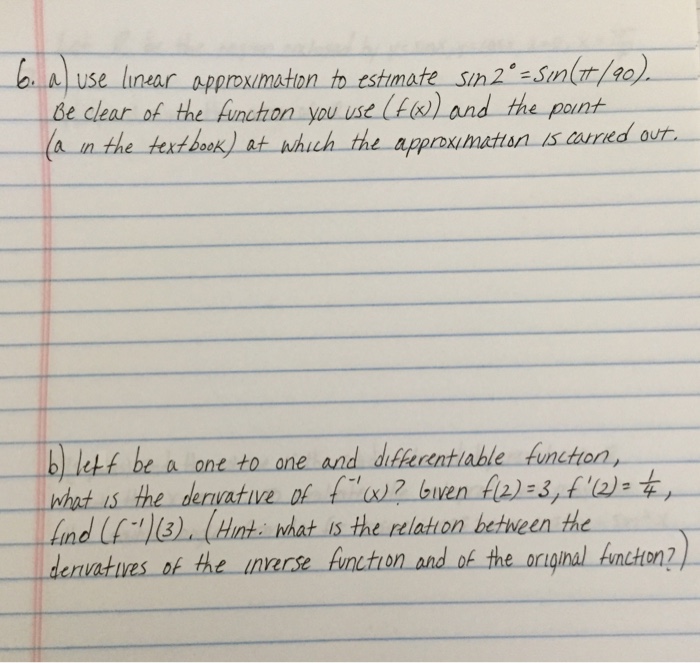 6. a) use linear approximation to estimate sin 2° = sin(π/90).
Be clear of the function you use (f(x)) and the point
(a in the textbook) at which the approximation is carried out.
b) let f be a one to one and differentiable function,
what is the derivative of f⁻¹(x)? Given f(2)=3, f'(2)=1/4,
find (f⁻¹)(3). (Hint: what is the relation between the
derivatives of the inverse function and of the original function?)